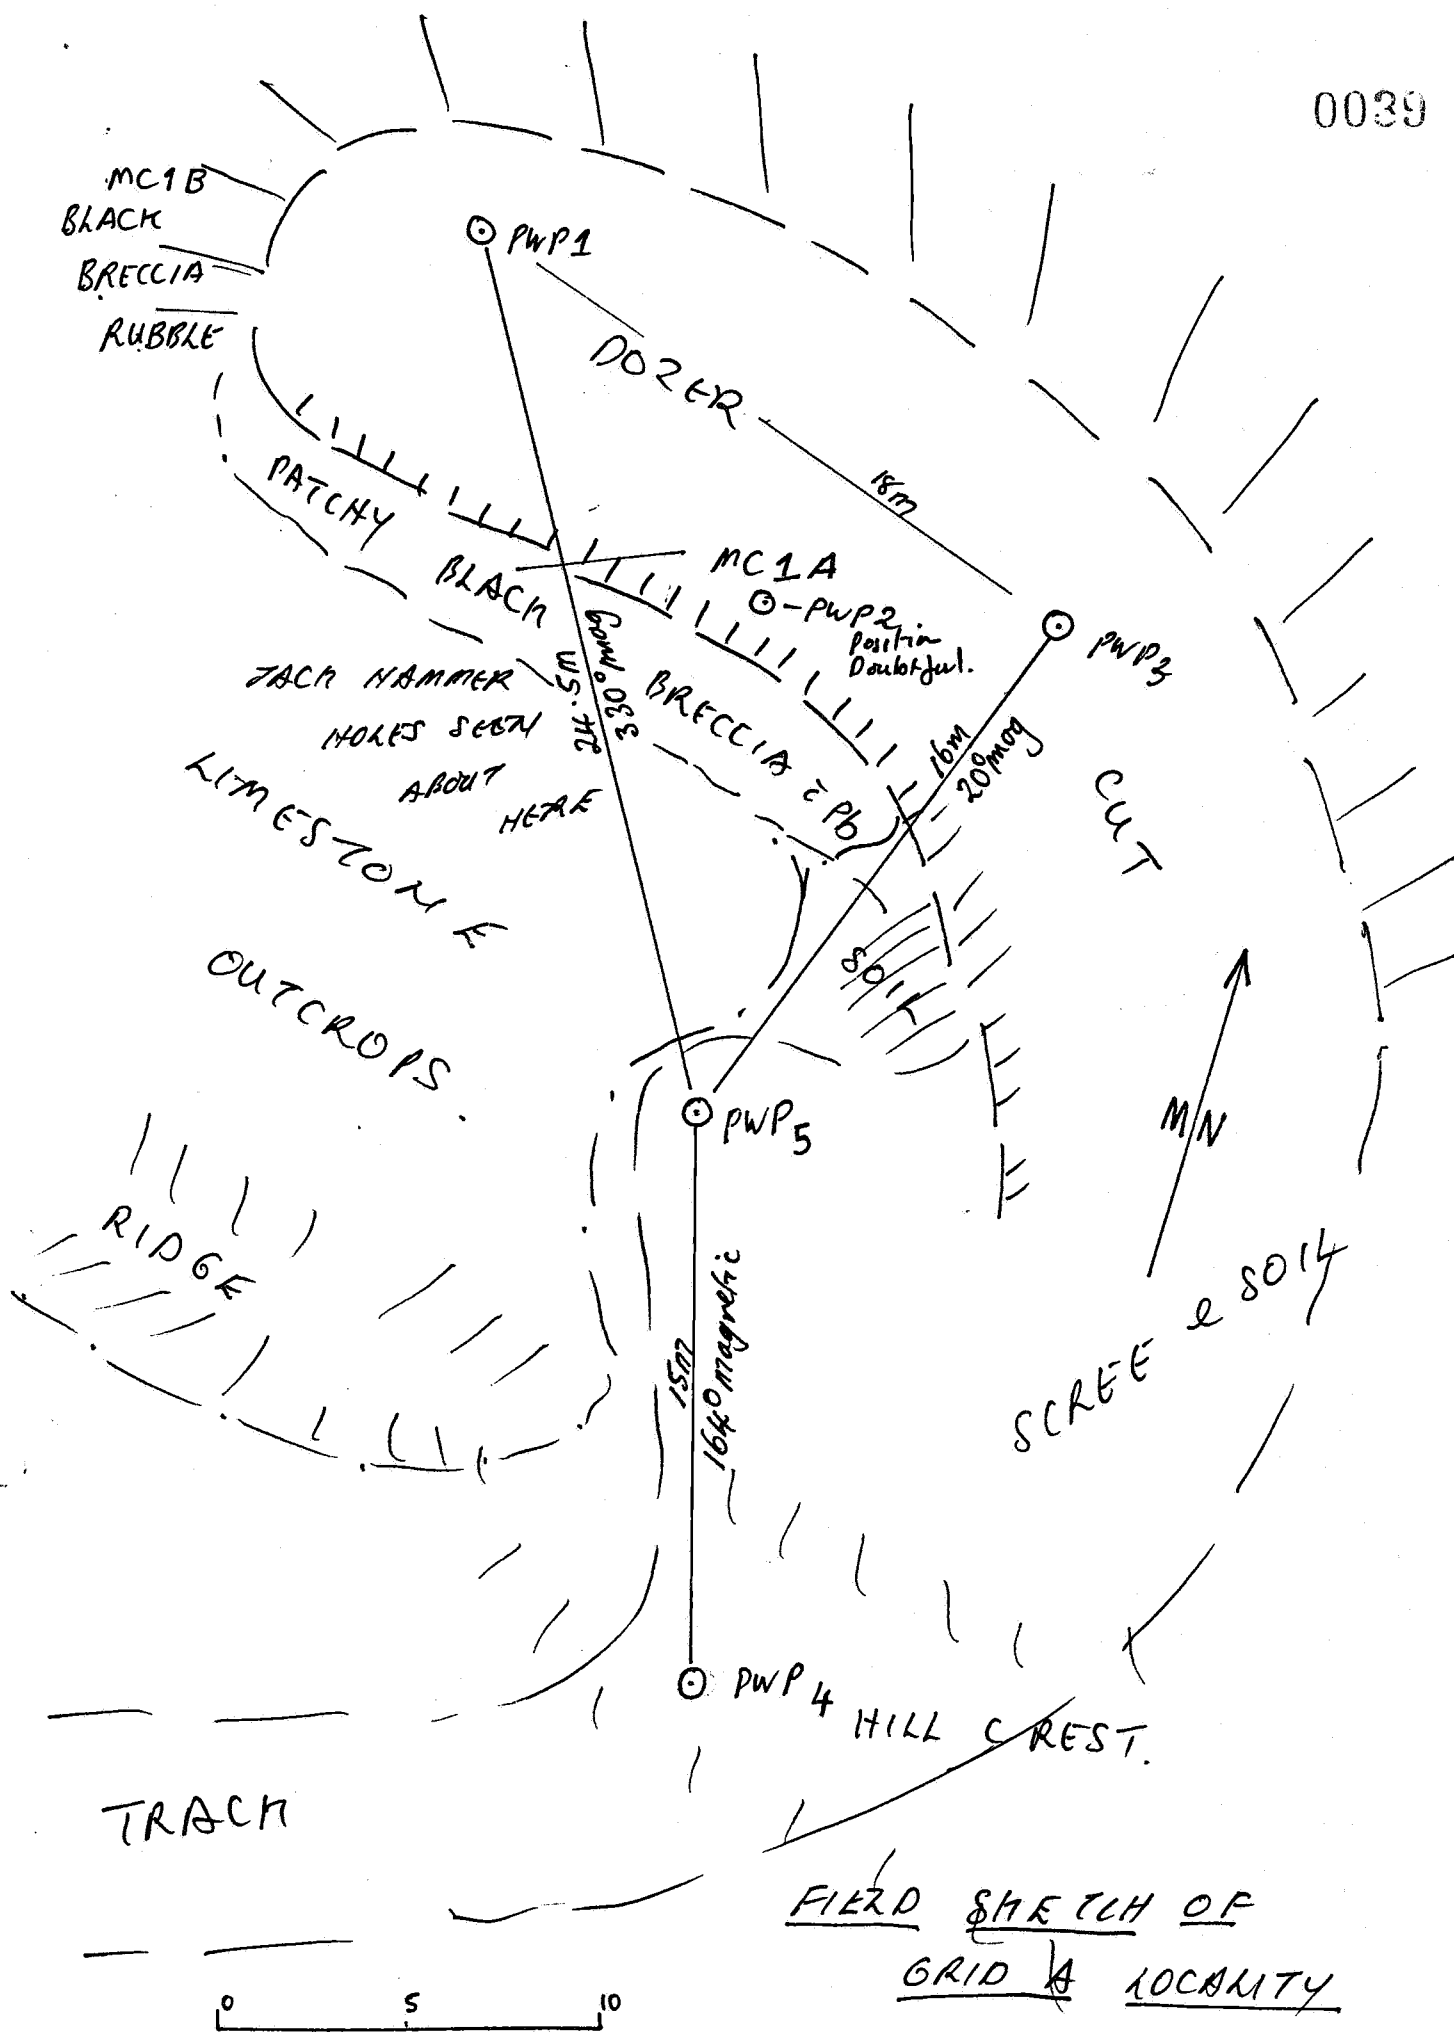 0039
MC1B
BLACK
BRECCIA
RUBBLE
PWP1
DOZER
18m
PATCHY
BLACK
BRECCIA c̄ Pb
MC1A
PWP2
Position
Doubtful.
PWP3
JACK HAMMER
HOLES SEEN
ABOUT
HERE
24.5m
330° mag
16m
20° mag
CUT
LIMESTONE
OUTCROPS.
SOIL
PWP5
MN
RIDGE
15m
164° magnetic
SCREE & SOIL
PWP4
HILL CREST.
TRACK
FIELD SKETCH OF
GRID A LOCALITY
0 5 10